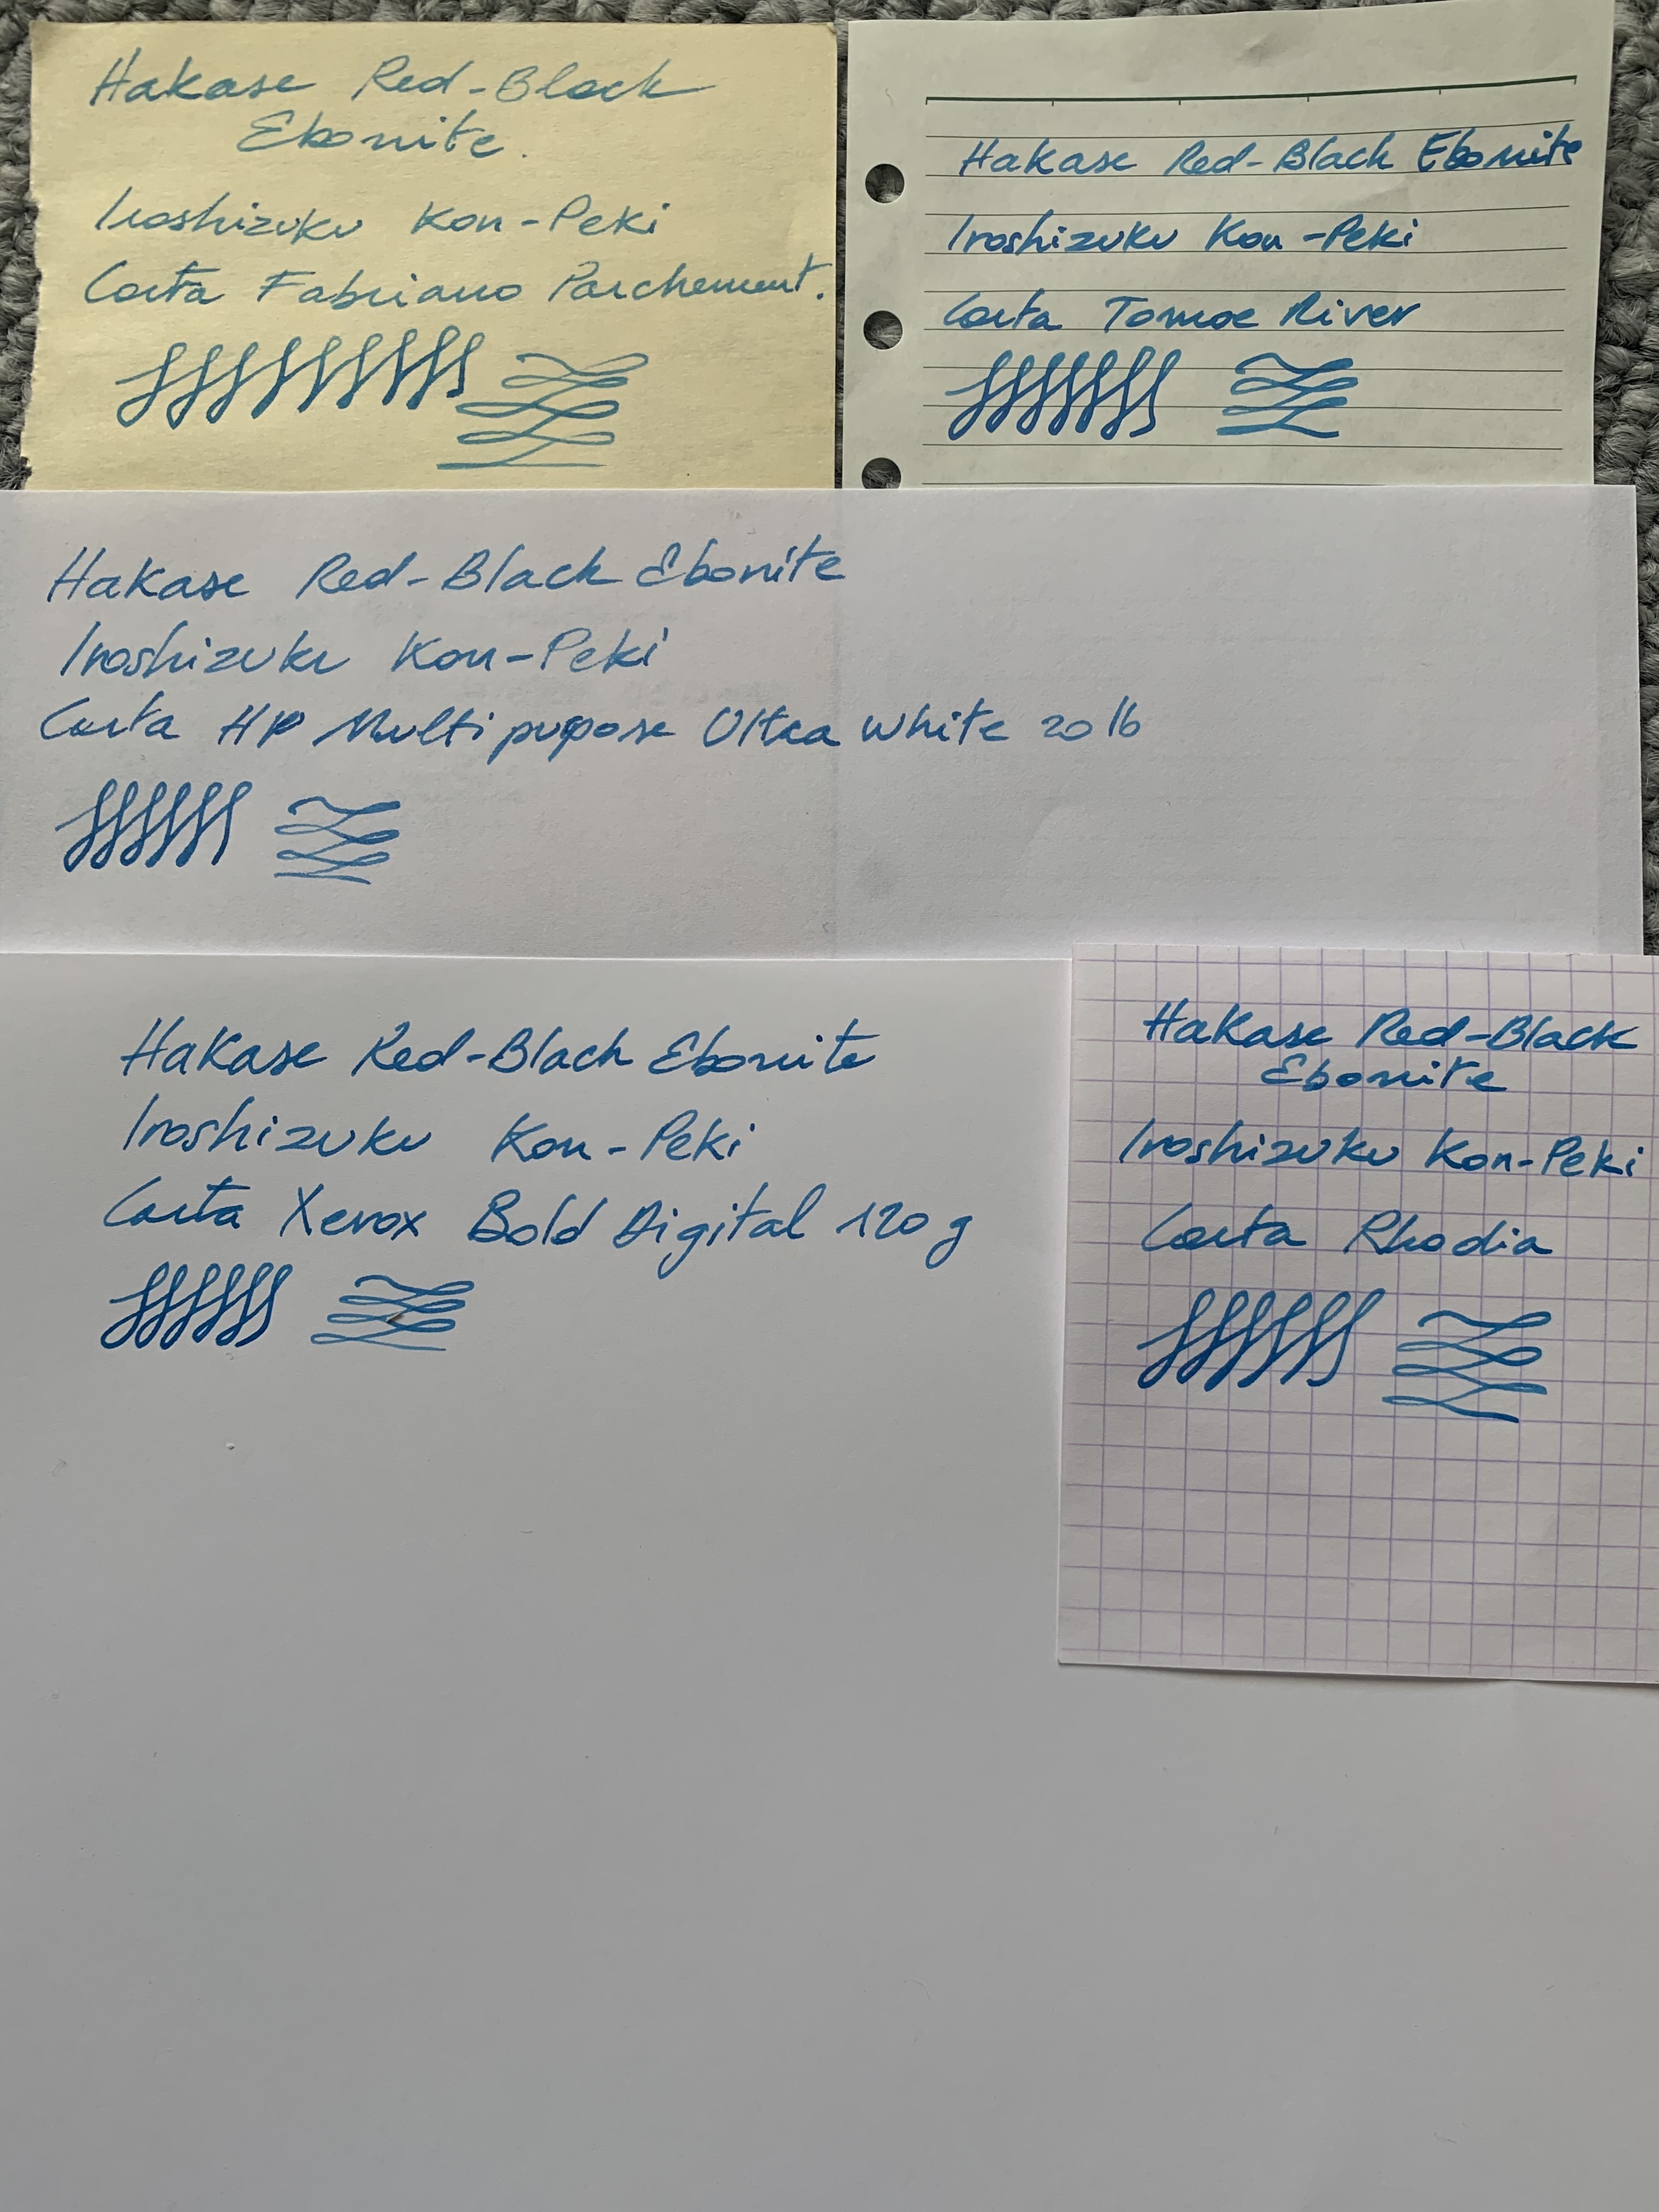 Hakase Red-Black
Ebonite.
Iroshizuku Kon-Peki
Carta Fabriano Parchement.
Hakase Red-Black Ebonite
Iroshizuku Kon-Peki
Carta Tomoe River
Hakase Red-Black Ebonite
Iroshizuku Kon-Peki
Carta HP Multipupose Ultra white 20 lb
Hakase Red-Black Ebonite
Iroshizuku Kon-Peki
Carta Xerox Bold Digital 120 g
Hakase Red-Black
Ebonite
Iroshizuku Kon-Peki
Carta Rhodia